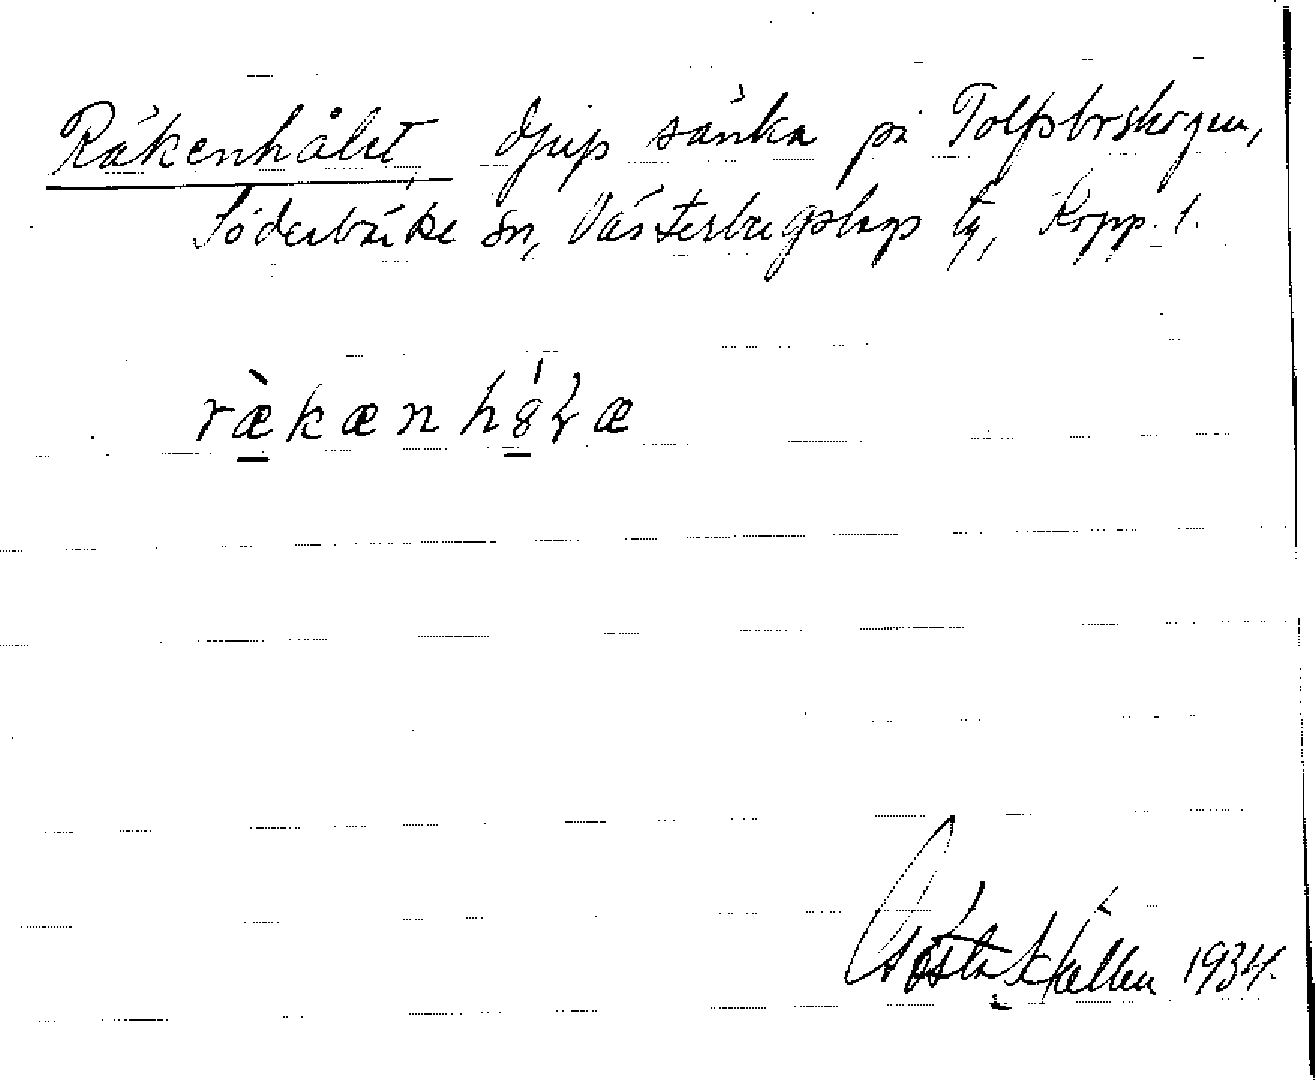 Räkenhålet, djup sänka på Tolfsboskogen,
Söderbärke sn, Västerbergslags tg, Kopp. l.
rækænhålæ
Gösta Källén 1934.